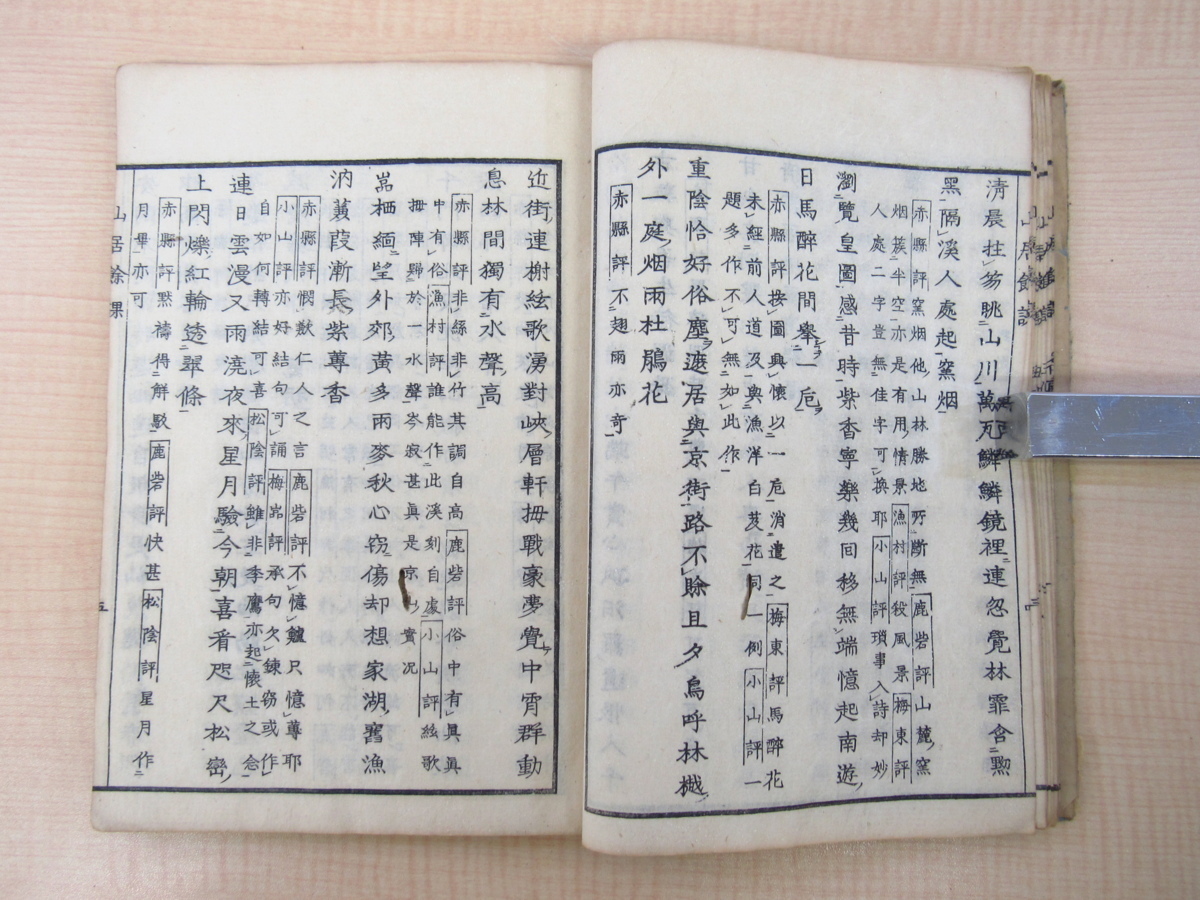 清晨拄笏眺山川萬瓦鱗鱗鏡裡連忽覺林霏含黝
黑隔溪人處起窯烟
赤縣評窯烟他山林勝地所斷無鹿砦評山麓窯
烟簇半空亦是有用情景漁村評殺風景梅東評
人處二字豈無佳字可換耶小山評瑣事入詩却妙
瀏覽皇圖感昔時紫香寧樂幾回移無端憶起南遊
日馬醉花間舉一卮
赤縣評按圖興懷以一卮消遣之梅東評馬醉花
未經前人道及與漁洋白芨花同一例小山評一
題多作不可無如此作
重陰恰好俗塵遮居與京街路不賖且夕烏呼林樾
外一庭烟雨杜鵑花
赤縣評不翅雨亦奇
近街連榭絃歌湧對峽層軒拇戰豪夢覺中宵群動
息林間獨有水聲高
赤縣評非絲非竹其調自高鹿砦評俗中有眞眞
中有俗漁村評誰能作此溪刻自處小山評絃歌
拇陣歸於一水聲岑寂甚眞是京ノ實況
嵓栖緬望外郊黄多雨麥秋心窃傷却想家湖舊漁
汭蒹葭漸長紫蓴香
赤縣評憫歉仁人之言鹿砦評不憶鱸只憶蓴耶
小山評亦好結句可誦梅嵓評承句欠鍊窃或作
自如何轉結可喜松陰評雖非季鷹亦起懷土之念
連日雲漫又雨澆夜來星月驗今朝喜看咫尺松密
上閃爍紅輪透翠條
赤縣評黙禱得解歟鹿砦評快甚松陰評星月作
月畢亦可
山居餘課
五